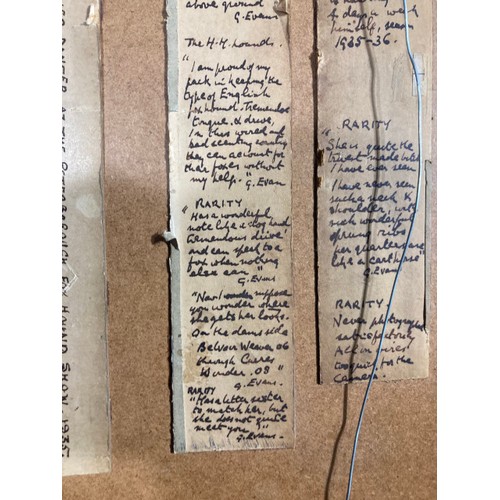 above ground
G. Evans
The H.H. hounds.
"I am proud of my
pack in keeping the
type of English
foxhound. Tremendous
tongue, & drive,
In this world and
bad scenting country
they can account for
their foxes without
my help." G. Evans
RARITY
"Has a wonderful
note like a stag hound
tremendous drive'
and can speak to a
fox when nothing
else can"
G. Evans
"Now I suppose
you wonder where
she gets her looks.
On the dams side
Belvoir Weaver 06
through
Wonder. 08"
G. Evans.
RARITY
"Has a litter sister
to match her, but
she does not quite
meet you"
G. Evans.
4 days a week
himself, season
1935-36.
RARITY
"She is quite the
truest made bitch
I have ever seen
I have never seen
such a neck &
shoulder, with
such wonderful
sprung ribs
her quarters are
like a cart horse"
G. Evans
RARITY
Never photographed
satisfactorily
All in wires!
too quick for the
Camera.
HOUND SHOW 1935.